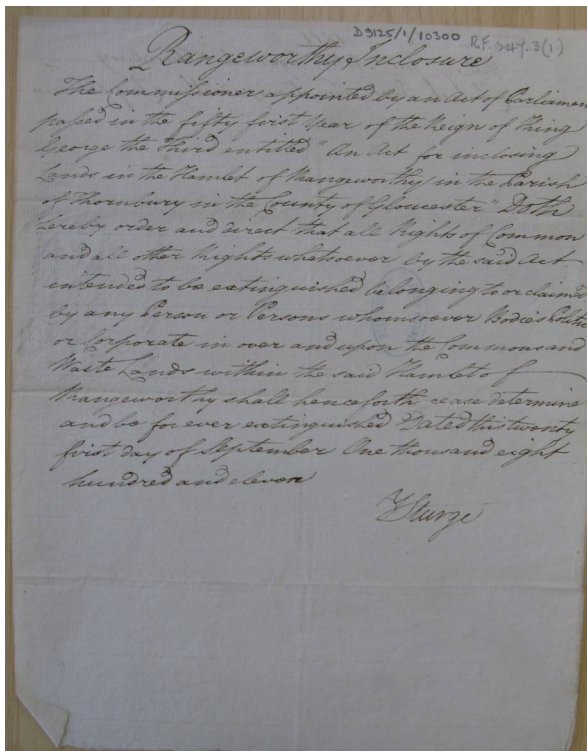 D9125/1/10300
RF.349.3(1)
Rangeworthy Inclosure
The Commissioner appointed by an Act of Parliamen
passed in the fifty first Year of the Reign of King
George the Third entitled "An Act for inclosing
Lands in the Hamlet of Rangeworthy in the Parish
of Thornbury in the County of Gloucester" Doth
hereby order and direct that all Rights of Common
and all other Rights whatsoever by the said Act
intended to be extinguished belonging to or claimed
by any Person or Persons whomsoever Bodies Politi
or Corporate in over and upon the Commons and
Waste Lands within the said Hamlet of
Rangeworthy shall henceforth cease determine
and be for ever extinguished Dated this twenty
first day of September One thousand eight
hundred and eleven
Y Sturge